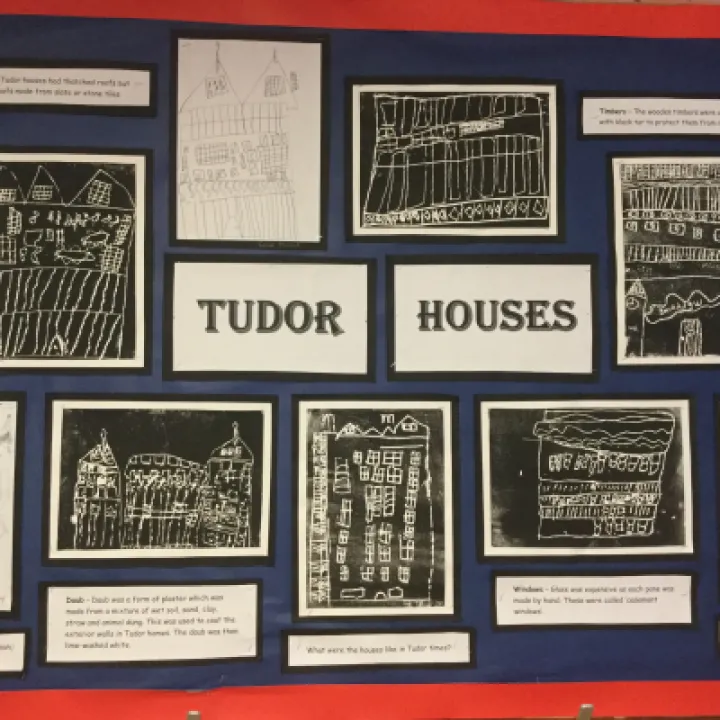 Tudor houses had thatched roofs but
roofs made from slate or stone tiles.
Timbers - The wooden timbers were
with black tar to protect them from
TUDOR HOUSES
Daub - Daub was a form of plaster which was
made from a mixture of wet soil, sand, clay,
straw and animal dung. This was used to coat the
exterior walls in Tudor homes. The daub was then
lime-washed white.
Windows - Glass was expensive as each pane was
made by hand. These were called 'casement
windows.
What were the houses like in Tudor times?